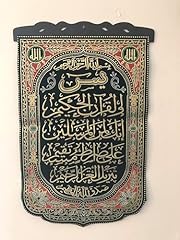 الله
بسم الله الرحمن الرحيم
يس
والقرآن الحكيم
إنك لمن المرسلين
على صراط مستقيم
تنزيل العزيز الرحيم
صدق الله العظيم